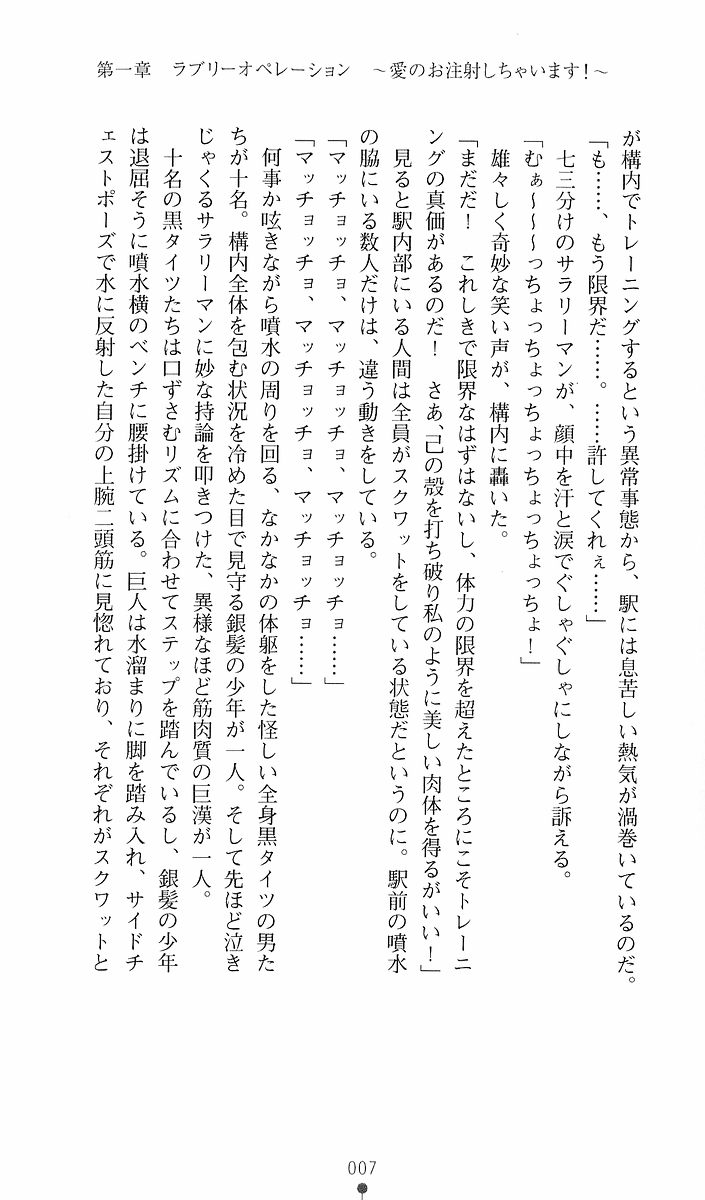 第一章　ラブリーオペレーション　～愛のお注射しちゃいます！～
が構内でトレーニングするという異常事態から、駅には息苦しい熱気が渦巻いているのだ。
「も……、もう限界だ……。……許してくれぇ……」
七三分けのサラリーマンが、顔中を汗と涙でぐしゃぐしゃにしながら訴える。
「むぁ～～～っちょっちょっちょっちょっちょ！」
雄々しく奇妙な笑い声が、構内に轟いた。
「まだだ！　これしきで限界なはずはないし、体力の限界を超えたところにこそトレーニ
ングの真価があるのだ！　さあ、己の殻を打ち破り私のように美しい肉体を得るがいい！」
見ると駅内部にいる人間は全員がスクワットをしている状態だというのに。駅前の噴水
の脇にいる数人だけは、違う動きをしている。
「マッチョッチョ、マッチョッチョ、マッチョッチョ……」
「マッチョッチョ、マッチョッチョ、マッチョッチョ……」
何事か呟きながら噴水の周りを回る、なかなかの体躯をした怪しい全身黒タイツの男た
ちが十名。構内全体を包む状況を冷めた目で見守る銀髪の少年が一人。そして先ほど泣き
じゃくるサラリーマンに妙な持論を叩きつけた、異様なほど筋肉質の巨漢が一人。
十名の黒タイツたちは口ずさむリズムに合わせてステップを踏んでいるし、銀髪の少年
は退屈そうに噴水横のベンチに腰掛けている。巨人は水溜まりに脚を踏み入れ、サイドチ
ェストポーズで水に反射した自分の上腕二頭筋に見惚れており、それぞれがスクワットと
007